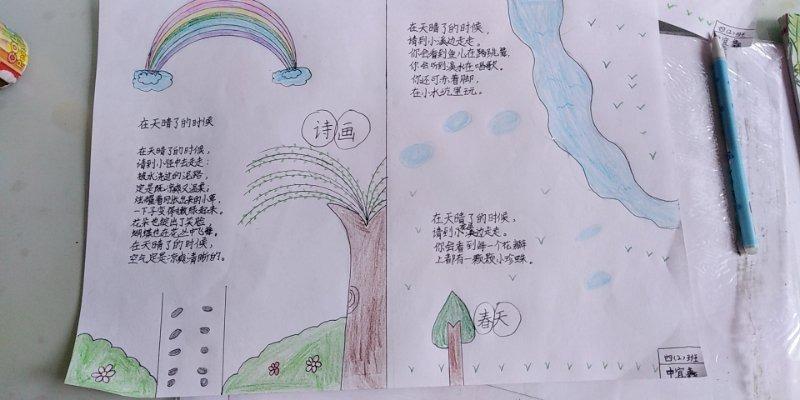 在天晴了的时候
诗画
在天晴了的时候，
请到小径中去走走：
被水浇过的泥路，
定是既凉爽又温柔，
一下子变得嫩绿起来。
花朵也绽出了笑脸
蝴蝶也在花丛中飞舞。
在天晴了的时候，
空气定是凉爽清晰的。
在天晴了的时候，
请到小溪边走走。
你会看到鱼儿在跳跳舞，
你会听到溪水在唱歌。
你还可赤着脚，
在小水沱里玩。
在天晴了的时候，
请到小溪边走走。
你会看到每一个花瓣
上都有一颗颗小珍珠。
春天
四(2)班
申宜
四(2)班